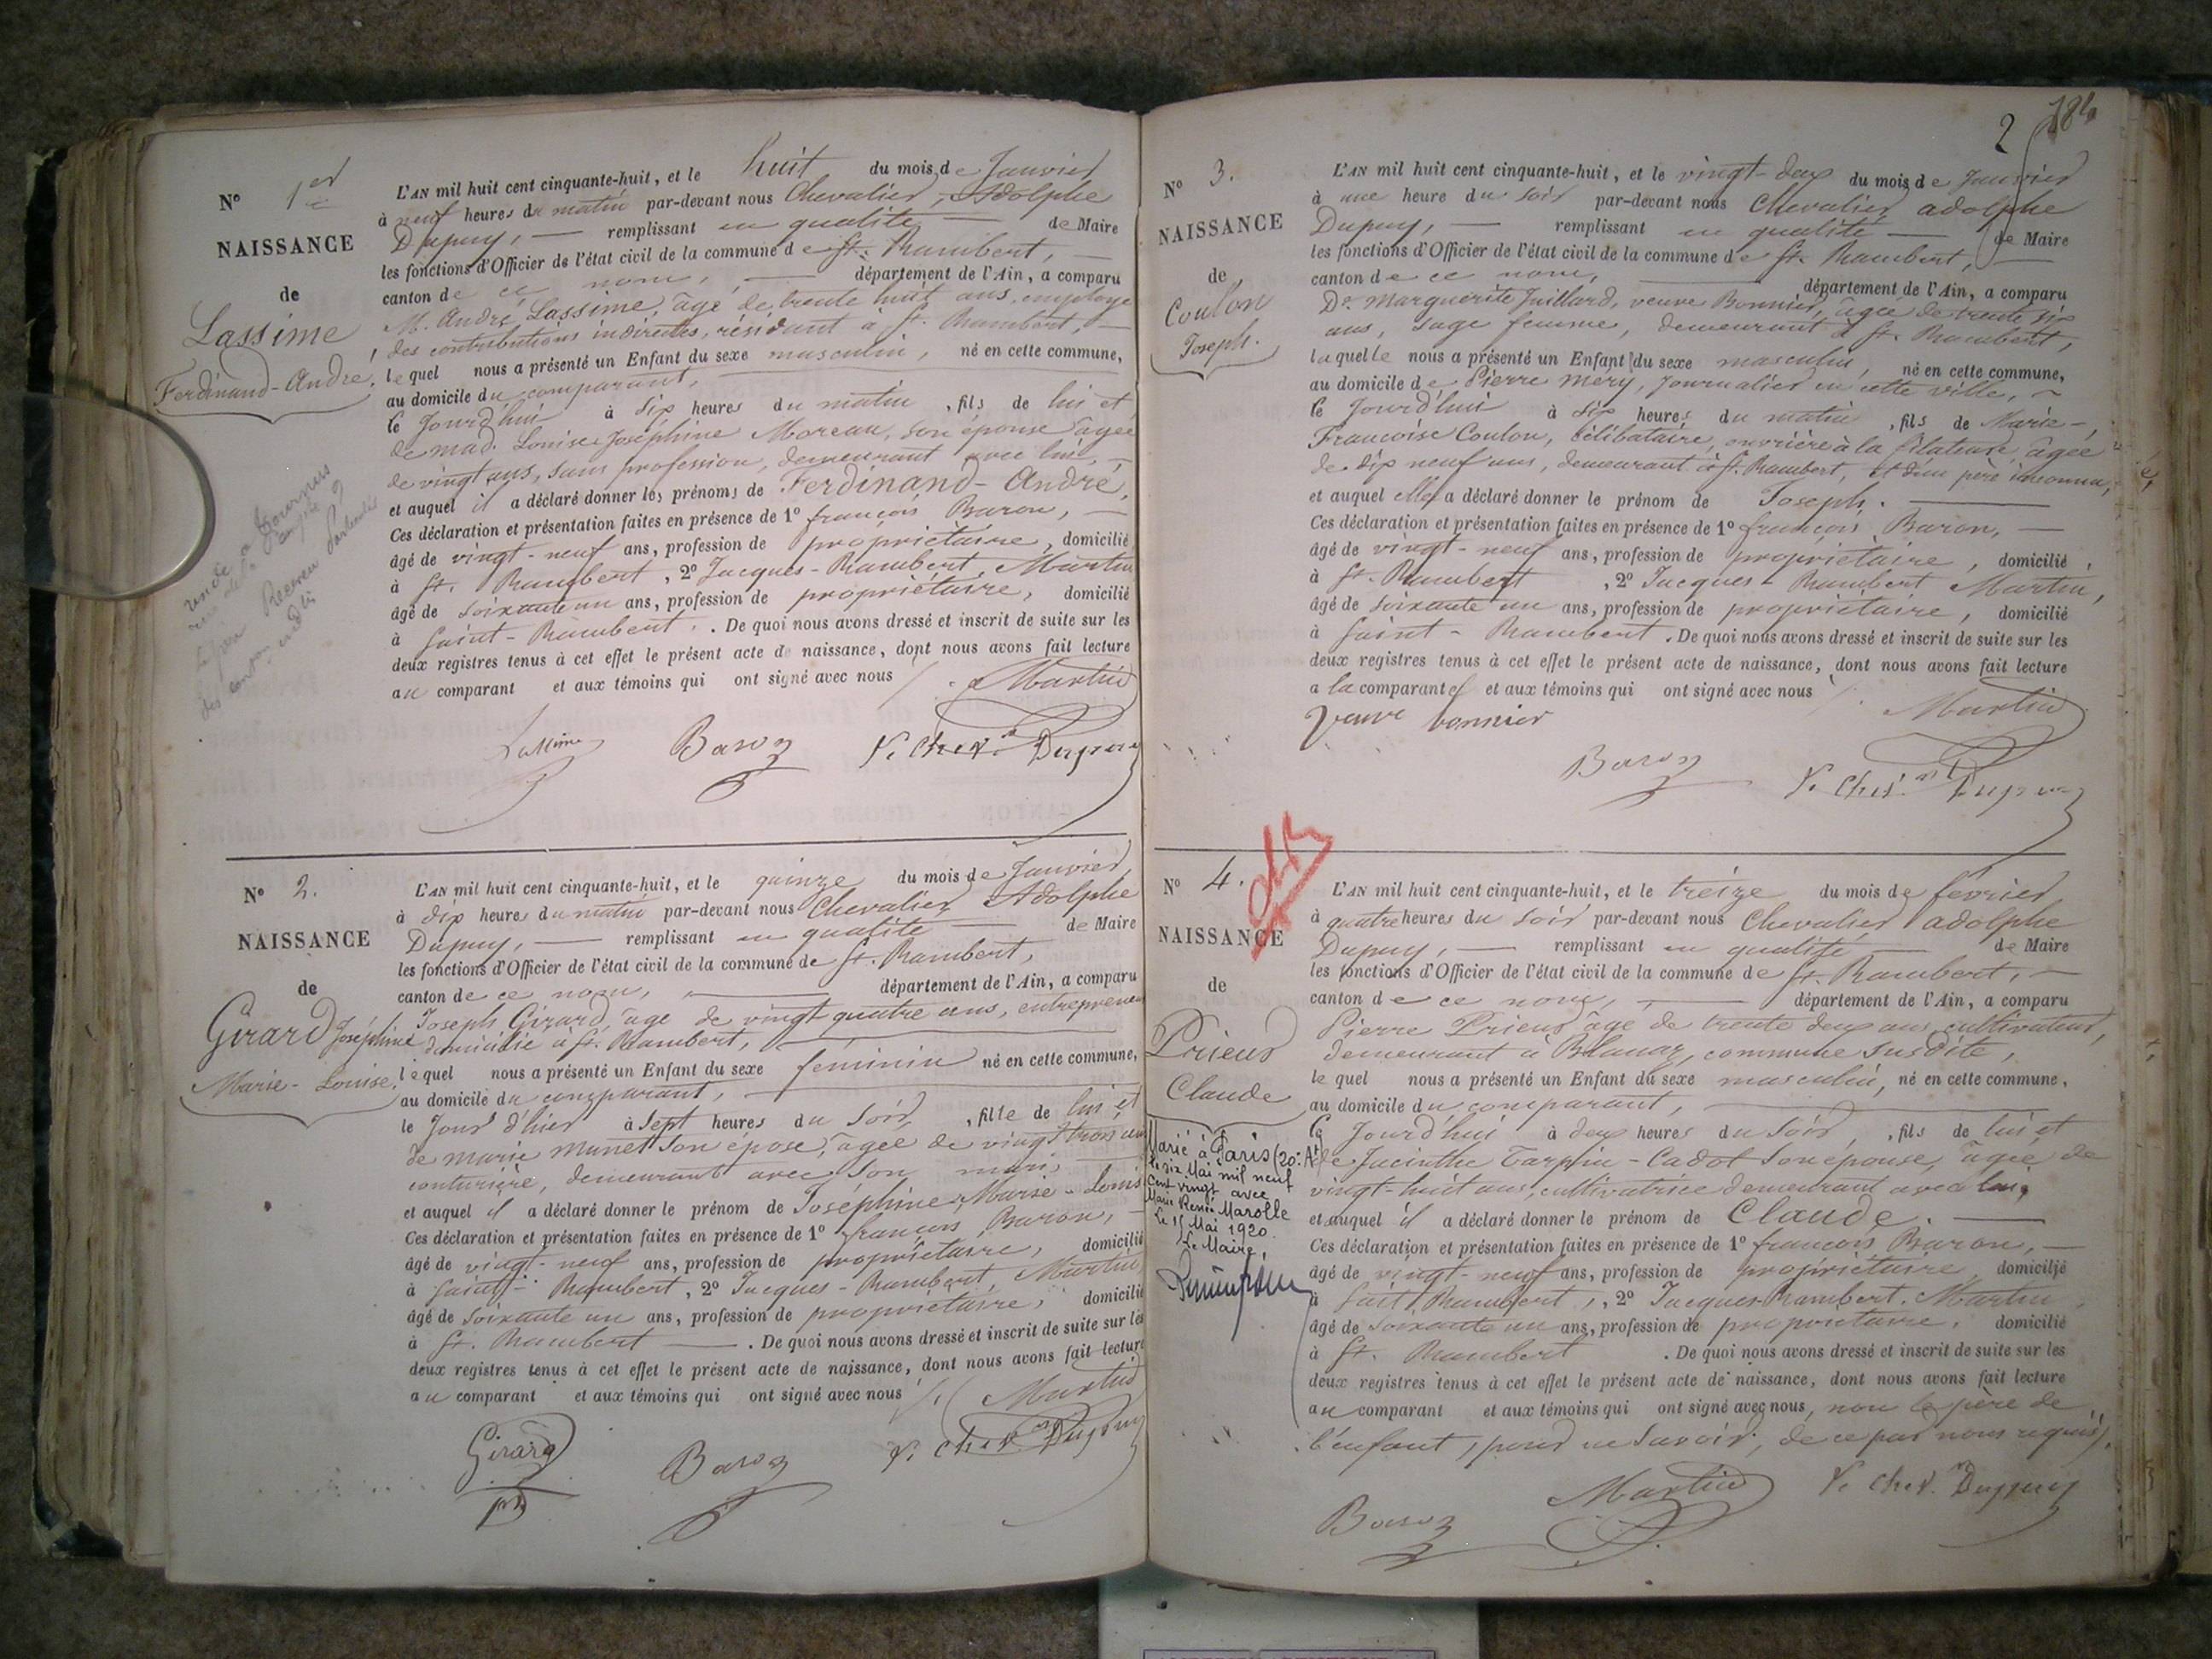 N° 1er
NAISSANCE
de
Lassime
Ferdinand-André.
L'AN mil huit cent cinquante-huit, et le huit du mois de Janvier
à neuf heures du matin par-devant nous Chevalier, Adolphe
Dupuy, — remplissant en qualité — de Maire
les fonctions d'Officier de l'état civil de la commune de St. Rambert, —
canton de ce nom, — département de l'Ain, a comparu
M. André Lassime, âgé de trente huit ans, employé
des contributions indirectes, résidant à St. Rambert, —
lequel nous a présenté un Enfant du sexe masculin, né en cette commune,
au domicile du comparant, —
le Jourd'hui à six heures du matin, fils de lui et
de mad. Louise Joséphine Moreau, son épouse âgée
de vingt ans, sans profession, demeurant avec lui, —
et auquel il a déclaré donner les prénoms de Ferdinand-André,
Ces déclaration et présentation faites en présence de 1° françois Baron, —
âgé de vingt-neuf ans, profession de propriétaire, domicilié
à St. Rambert, 2° Jacques-Rambert, Martin
âgé de soixante un ans, profession de propriétaire, domicilié
à Saint-Rambert. De quoi nous avons dressé et inscrit de suite sur les
deux registres tenus à cet effet le présent acte de naissance, dont nous avons fait lecture
au comparant et aux témoins qui ont signé avec nous
Martin
Lassime Baron Chev. Dupuy
N° 2.
NAISSANCE
de
Girard Joséphine
Marie-Louise.
L'AN mil huit cent cinquante-huit, et le quinze du mois de Janvier
à dix heures du matin par-devant nous Chevalier Adolphe
Dupuy, — remplissant en qualité — de Maire
les fonctions d'Officier de l'état civil de la commune de St. Rambert,
canton de ce nom, — département de l'Ain, a comparu
Joseph Girard, âgé de vingt quatre ans, entrepreneur
domicilié à St. Rambert, —
lequel nous a présenté un Enfant du sexe féminin né en cette commune,
au domicile du comparant, —
le Jour d'hier à sept heures du soir, fille de lui et
de marie munet son épose, âgée de vingt trois ans
couturière, demeurant avec son mari —
et auquel il a déclaré donner le prénom de Joséphine, Marie-Louis
Ces déclaration et présentation faites en présence de 1° françois Baron, —
âgé de vingt-neuf ans, profession de propriétaire, domicilié
à Saint-Rambert, 2° Jacques-Rambert, Martin
âgé de soixante un ans, profession de propriétaire, domicilié
à St. Rambert —. De quoi nous avons dressé et inscrit de suite sur les
deux registres tenus à cet effet le présent acte de naissance, dont nous avons fait lecture
au comparant et aux témoins qui ont signé avec nous
Martin
Girard Baron Chev. Dupuy
2
N° 3.
NAISSANCE
de
Coulon
Joseph.
L'AN mil huit cent cinquante-huit, et le vingt-deux du mois de Janvier
à une heure du soir par-devant nous Chevalier adolphe
Dupuy, — remplissant en qualité — de Maire
les fonctions d'Officier de l'état civil de la commune de St. Rambert, —
canton de ce nom, — département de l'Ain, a comparu
De. Marguerite Juillard, veuve Bonnier, âgée de trente six
ans, sage femme, demeurant à St. Rambert,
laquelle nous a présenté un Enfant du sexe masculin, né en cette commune,
au domicile de Pierre mery, Journalier en cette ville,
le Jourd'hui à six heures du matin, fils de Marie-
Francoise Coulon, célibataire, ouvrière à la filature, âgée
de dix neuf ans, demeurant à St. Rambert, et d'un père inconnu,
et auquel elle a déclaré donner le prénom de Joseph. —
Ces déclaration et présentation faites en présence de 1° francois Baron, —
âgé de vingt-neuf ans, profession de propriétaire, domicilié
à St. Rambert, 2° Jacques-Rambert Martin,
âgé de soixante un ans, profession de propriétaire, domicilié
à Saint-Rambert. De quoi nous avons dressé et inscrit de suite sur les
deux registres tenus à cet effet le présent acte de naissance, dont nous avons fait lecture
a la comparante et aux témoins qui ont signé avec nous
veuve bonnier Martin
Baron Chev. Dupuy
N° 4.
NAISSANCE
de
Prieur
Claude
Marié à Paris (20e Art)
le six Mai mil neuf
cent vingt avec
Marie Renée Marolle
Le 15 Mai 1920.
Le Maire,
L'AN mil huit cent cinquante-huit, et le treize du mois de février
à quatre heures du soir par-devant nous Chevalier adolphe
Dupuy, — remplissant en qualité — de Maire
les fonctions d'Officier de l'état civil de la commune de St. Rambert, —
canton de ce nom, — département de l'Ain, a comparu
Pierre Prieur âgé de trente deux ans, cultivateur,
demeurant à Blanaz, commune susdite,
lequel nous a présenté un Enfant du sexe masculin, né en cette commune,
au domicile du comparant, —
le Jourd'hui à deux heures du soir, fils de lui et
de Jacinthe Tarpin-Cadot son épouse, âgée de
vingt-huit ans, cultivatrice demeurant avec lui,
et auquel il a déclaré donner le prénom de Claude. —
Ces déclaration et présentation faites en présence de 1° francois Baron, —
âgé de vingt-neuf ans, profession de propriétaire, domicilié
à Saint Rambert, 2° Jacques-Rambert. Martin
âgé de soixante un ans, profession de propriétaire, domicilié
à St. Rambert. De quoi nous avons dressé et inscrit de suite sur les
deux registres tenus à cet effet le présent acte de naissance, dont nous avons fait lecture
au comparant et aux témoins qui ont signé avec nous, non le père de
l'enfant, pour ne savoir, de ce par nous requis,
Baron Martin Chev. Dupuy